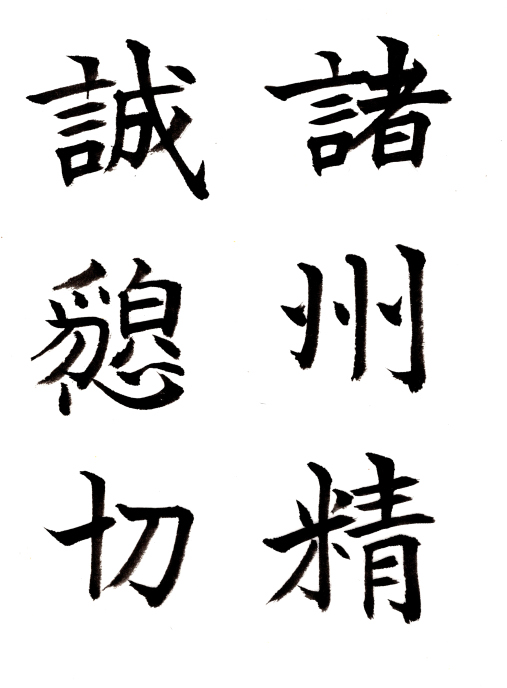 諸州精
誠懇切